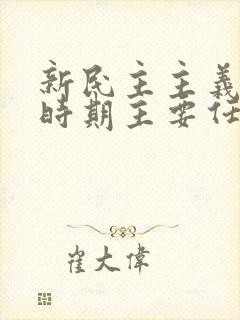 新民主主義
時期主要任
崔大偉